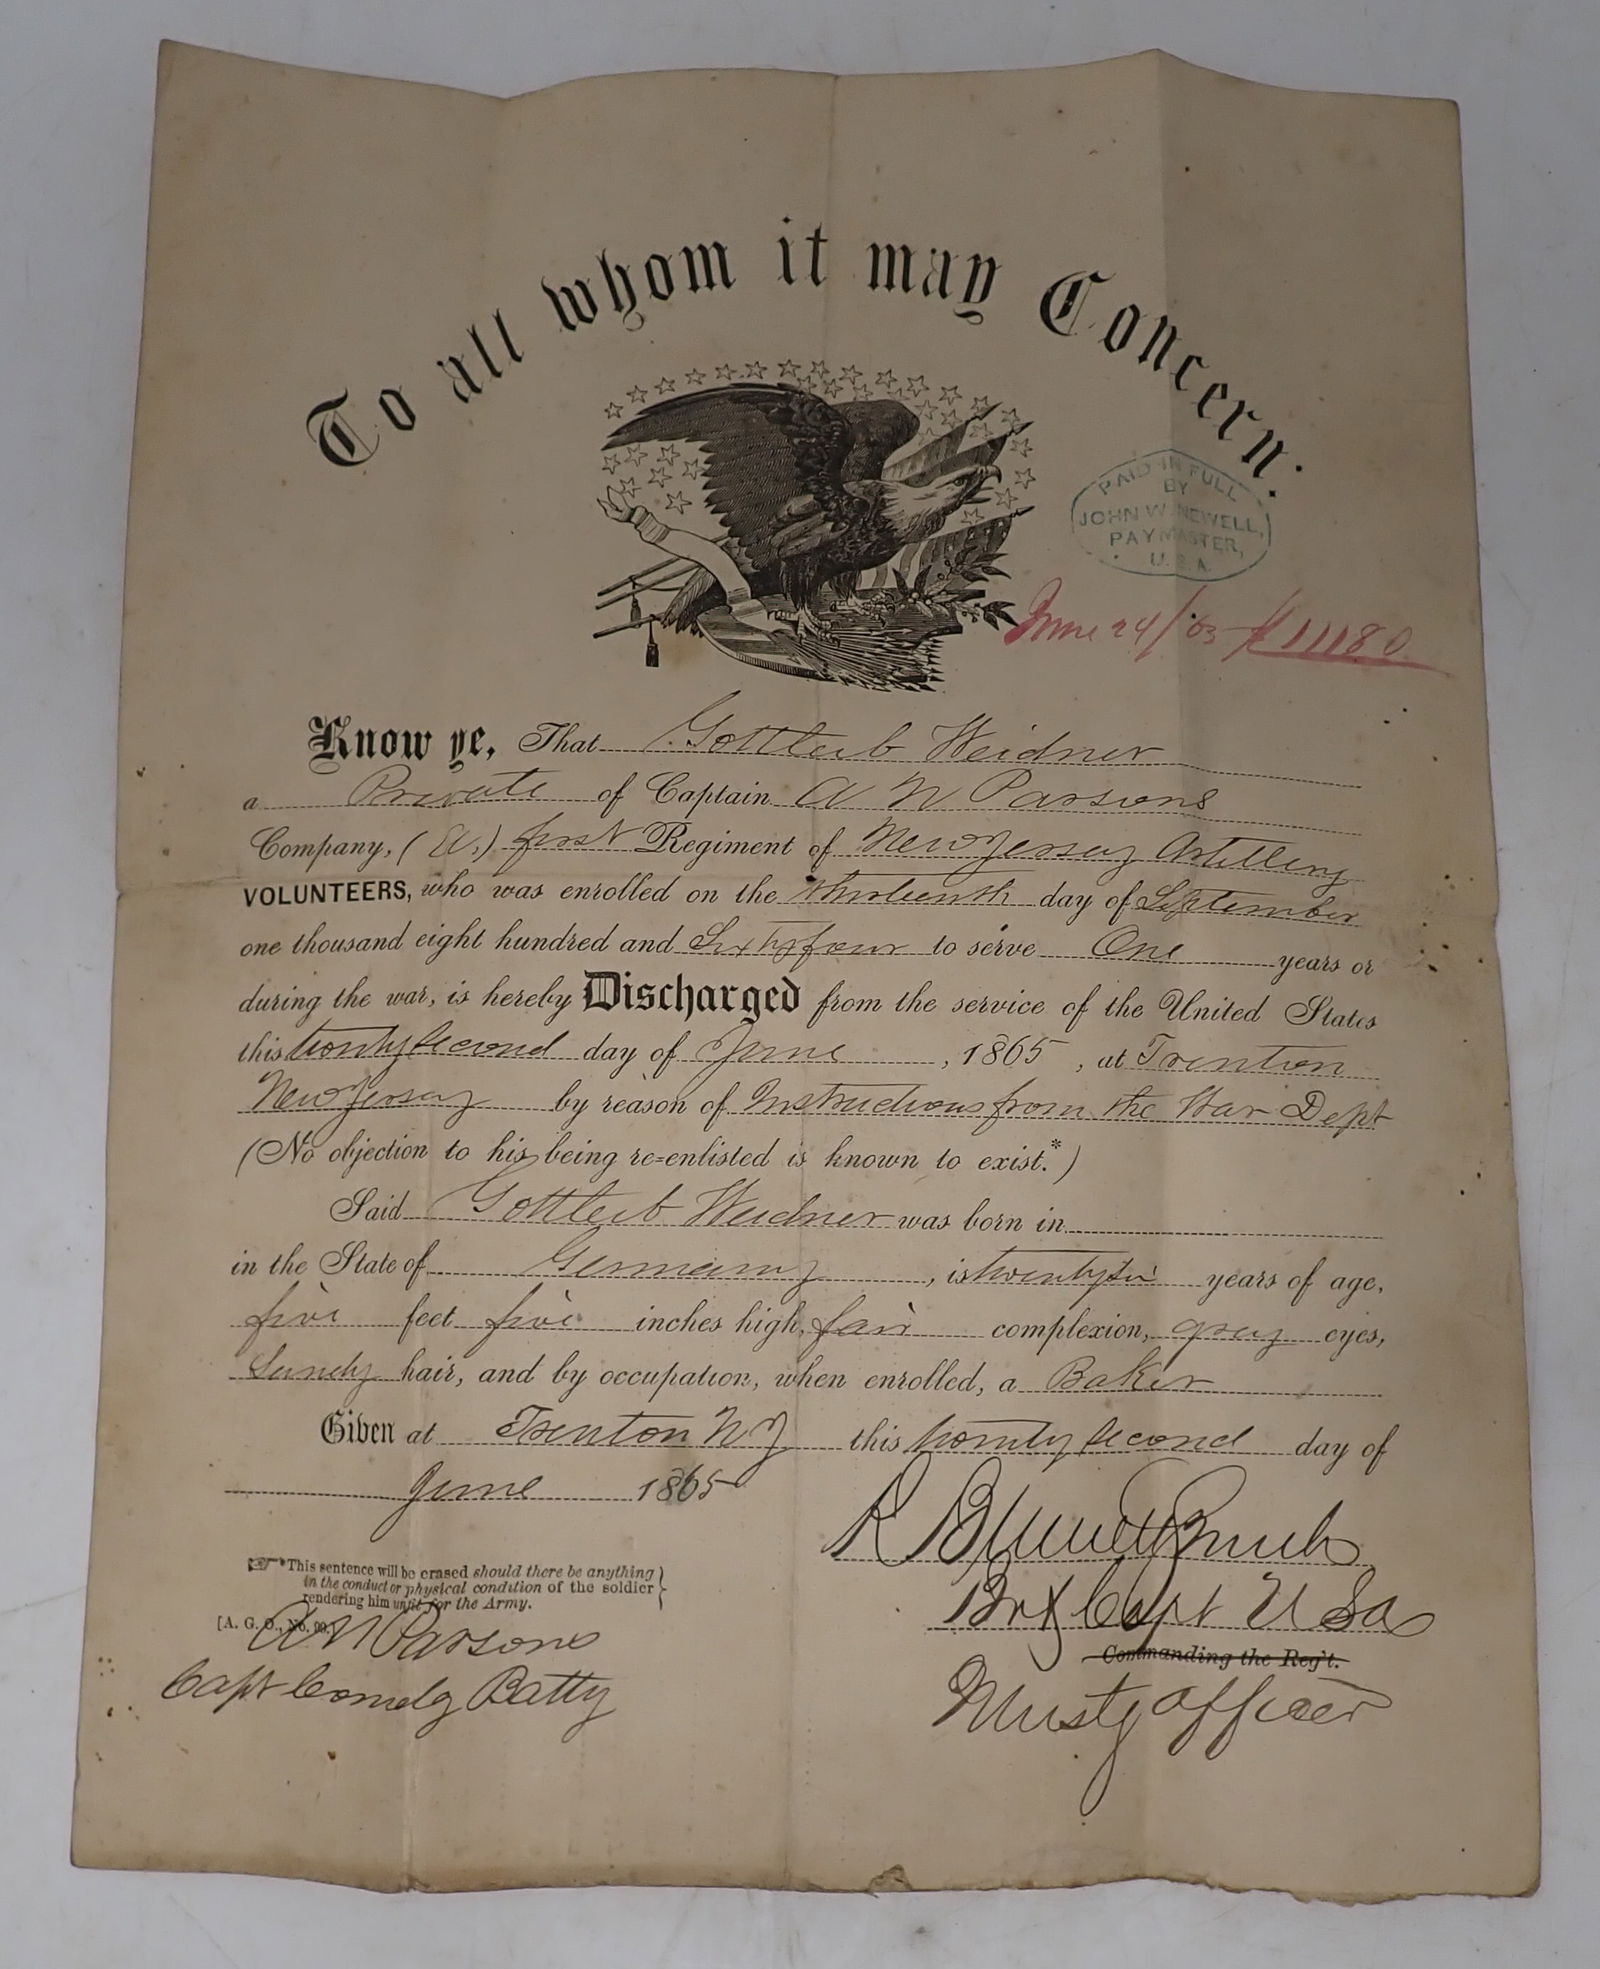 To all whom it may Concern:
PAID IN FULL
BY
JOHN W. NEWELL,
PAYMASTER,
U.S.A.
June 24/65 $11180
Know ye, That Gottleib Weidner
a Private of Captain A N Parsons
Company, ( ) first Regiment of New Jersey Artillery
VOLUNTEERS, who was enrolled on the thirteenth day of September
one thousand eight hundred and Sixty four to serve One years or
during the war, is hereby Discharged from the service of the United States
this twenty second day of June , 1865 , at Trenton
New Jersey by reason of Instructions from the War Dept
(No objection to his being re-enlisted is known to exist.*)
Said Gottleib Weidner was born in
in the State of Germany , is twenty six years of age,
five feet five inches high, fair complexion, gray eyes,
Sandy hair, and by occupation, when enrolled, a Baker
Given at Trenton N J this twenty second day of
June 1865
R
*This sentence will be erased should there be anything
in the conduct or physical condition of the soldier
rendering him unfit for the Army.
Bvt Capt U S A
[A. G. O., No. 99.]
A N Parsons
Commanding the Reg't.
Capt Comdg Batty
Mustg Officer